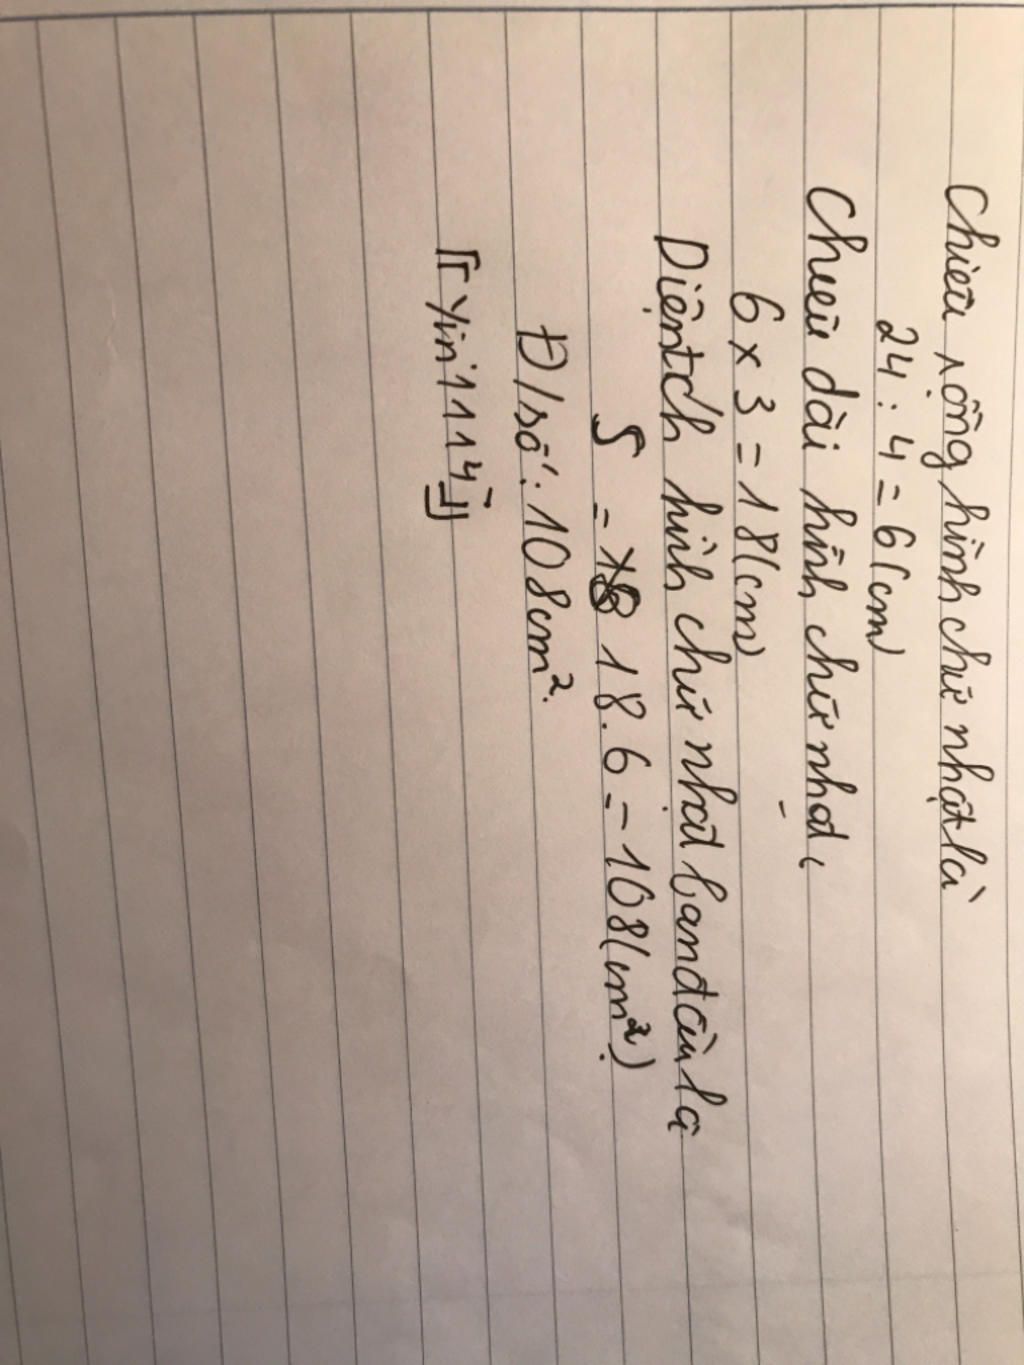 Chiều rộng hình chữ nhật là
24 : 4 = 6 (cm)
Chiều dài hình chữ nhật
6 x 3 = 18 (cm)
Diện tích hình chữ nhật ban đầu là
S = 18 . 6 = 108 (cm²)
Đ/số: 108cm².
『Yin1114』